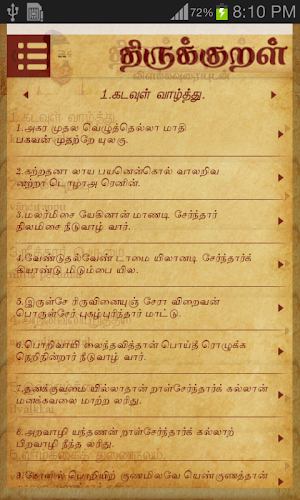 72% 8:10 PM
திருக்குறள்
விளக்கவுரையுடன்
1.கடவுள் வாழ்த்து.
1.அகர முதல வெழுத்தெல்லா மாதி
பகவன் முதற்றே யுலகு.
2.கற்றதனா லாய பயனென்கொல் வாலறிவ
னற்றா டொழாஅ ரெனின்.
3.மலர்மிசை யேகினான் மாணடி சேர்ந்தார்
நிலமிசை நீடுவாழ் வார்.
4.வேண்டுதல்வேண் டாமை யிலானடி சேர்ந்தார்க்
கியாண்டு மிடும்பை யில.
5.இருள்சே ரிருவினையுஞ் சேரா விறைவன்
பொருள்சேர் புகழ்புரிந்தார் மாட்டு.
6.பொறிவாயி லைந்தவித்தான் பொய்தீ ரொழுக்க
நெறிநின்றார் நீடுவாழ் வார்.
7.தனக்குவமை யில்லாதான் றாள்சேர்ந்தார்க் கல்லான்
மனக்கவலை மாற்ற லரிது.
8.அறவாழி யந்தணன் றாள்சேர்ந்தார்க் கல்லாற்
பிறவாழி நீந்த லரிது.
9.கோளில் பொறியிற் குணமிலவே யெண்குணத்தான்